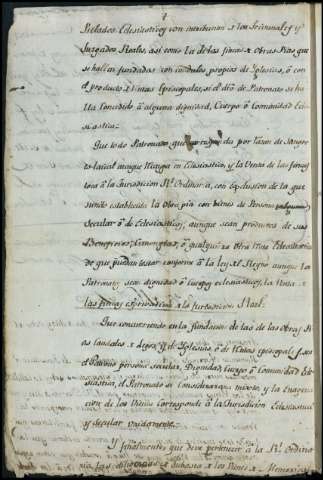 Prelados Eclesiasticos con inhibicion x los Tribunales y
Juzgados Reales, asi como la de las fincas x Obras Pias que
se hallen fundadas con caudales propios de Iglesias, ò con
el producto x Mitras Episcopales, si el dro de Patronato se ha
lla concedido à alguna dignidad, Cuerpo ò Comunidad Ecle
siastica.
Que todo Patronato que por razon de Sangre
es laical aunque recaiga en Eclesiastico, y la Venta de las fincas
toca à la Jurisdicion Rl. Ordinaria, con exclusion de la que
siendo establecida la Obra pia con bienes de Persona
secular ò de Eclesiasticos, aunque sean productos de sus
Beneficios, Canongias, ò qualquiera otra Renta Eclesiastica
de que puedan testar conforme à la ley xl Reyno aunque los
Patronos sean dignidad ò Cuerpos eclesiasticos, la Venta x
las fincas x la Jurisdicion Real.
Que concurriendo en la fundacion de las de las Obras Pias
caudales x Legos, y de Iglesias ò de Mitras episcopales, y sus
el Patrono persona secular, Dignidad, Cuerpo ò Comunidad Ecle
siastica, el Patronato se considerarà mixto, y la Enagena
cion de los Bienes corresponde à la Jurisdicion Eclesiastica
y secular unidamente.
Y finalmente que deve pertenecer à la Rl. Ordina
ria las diligencias x Subasta x los Bienes x Memorias